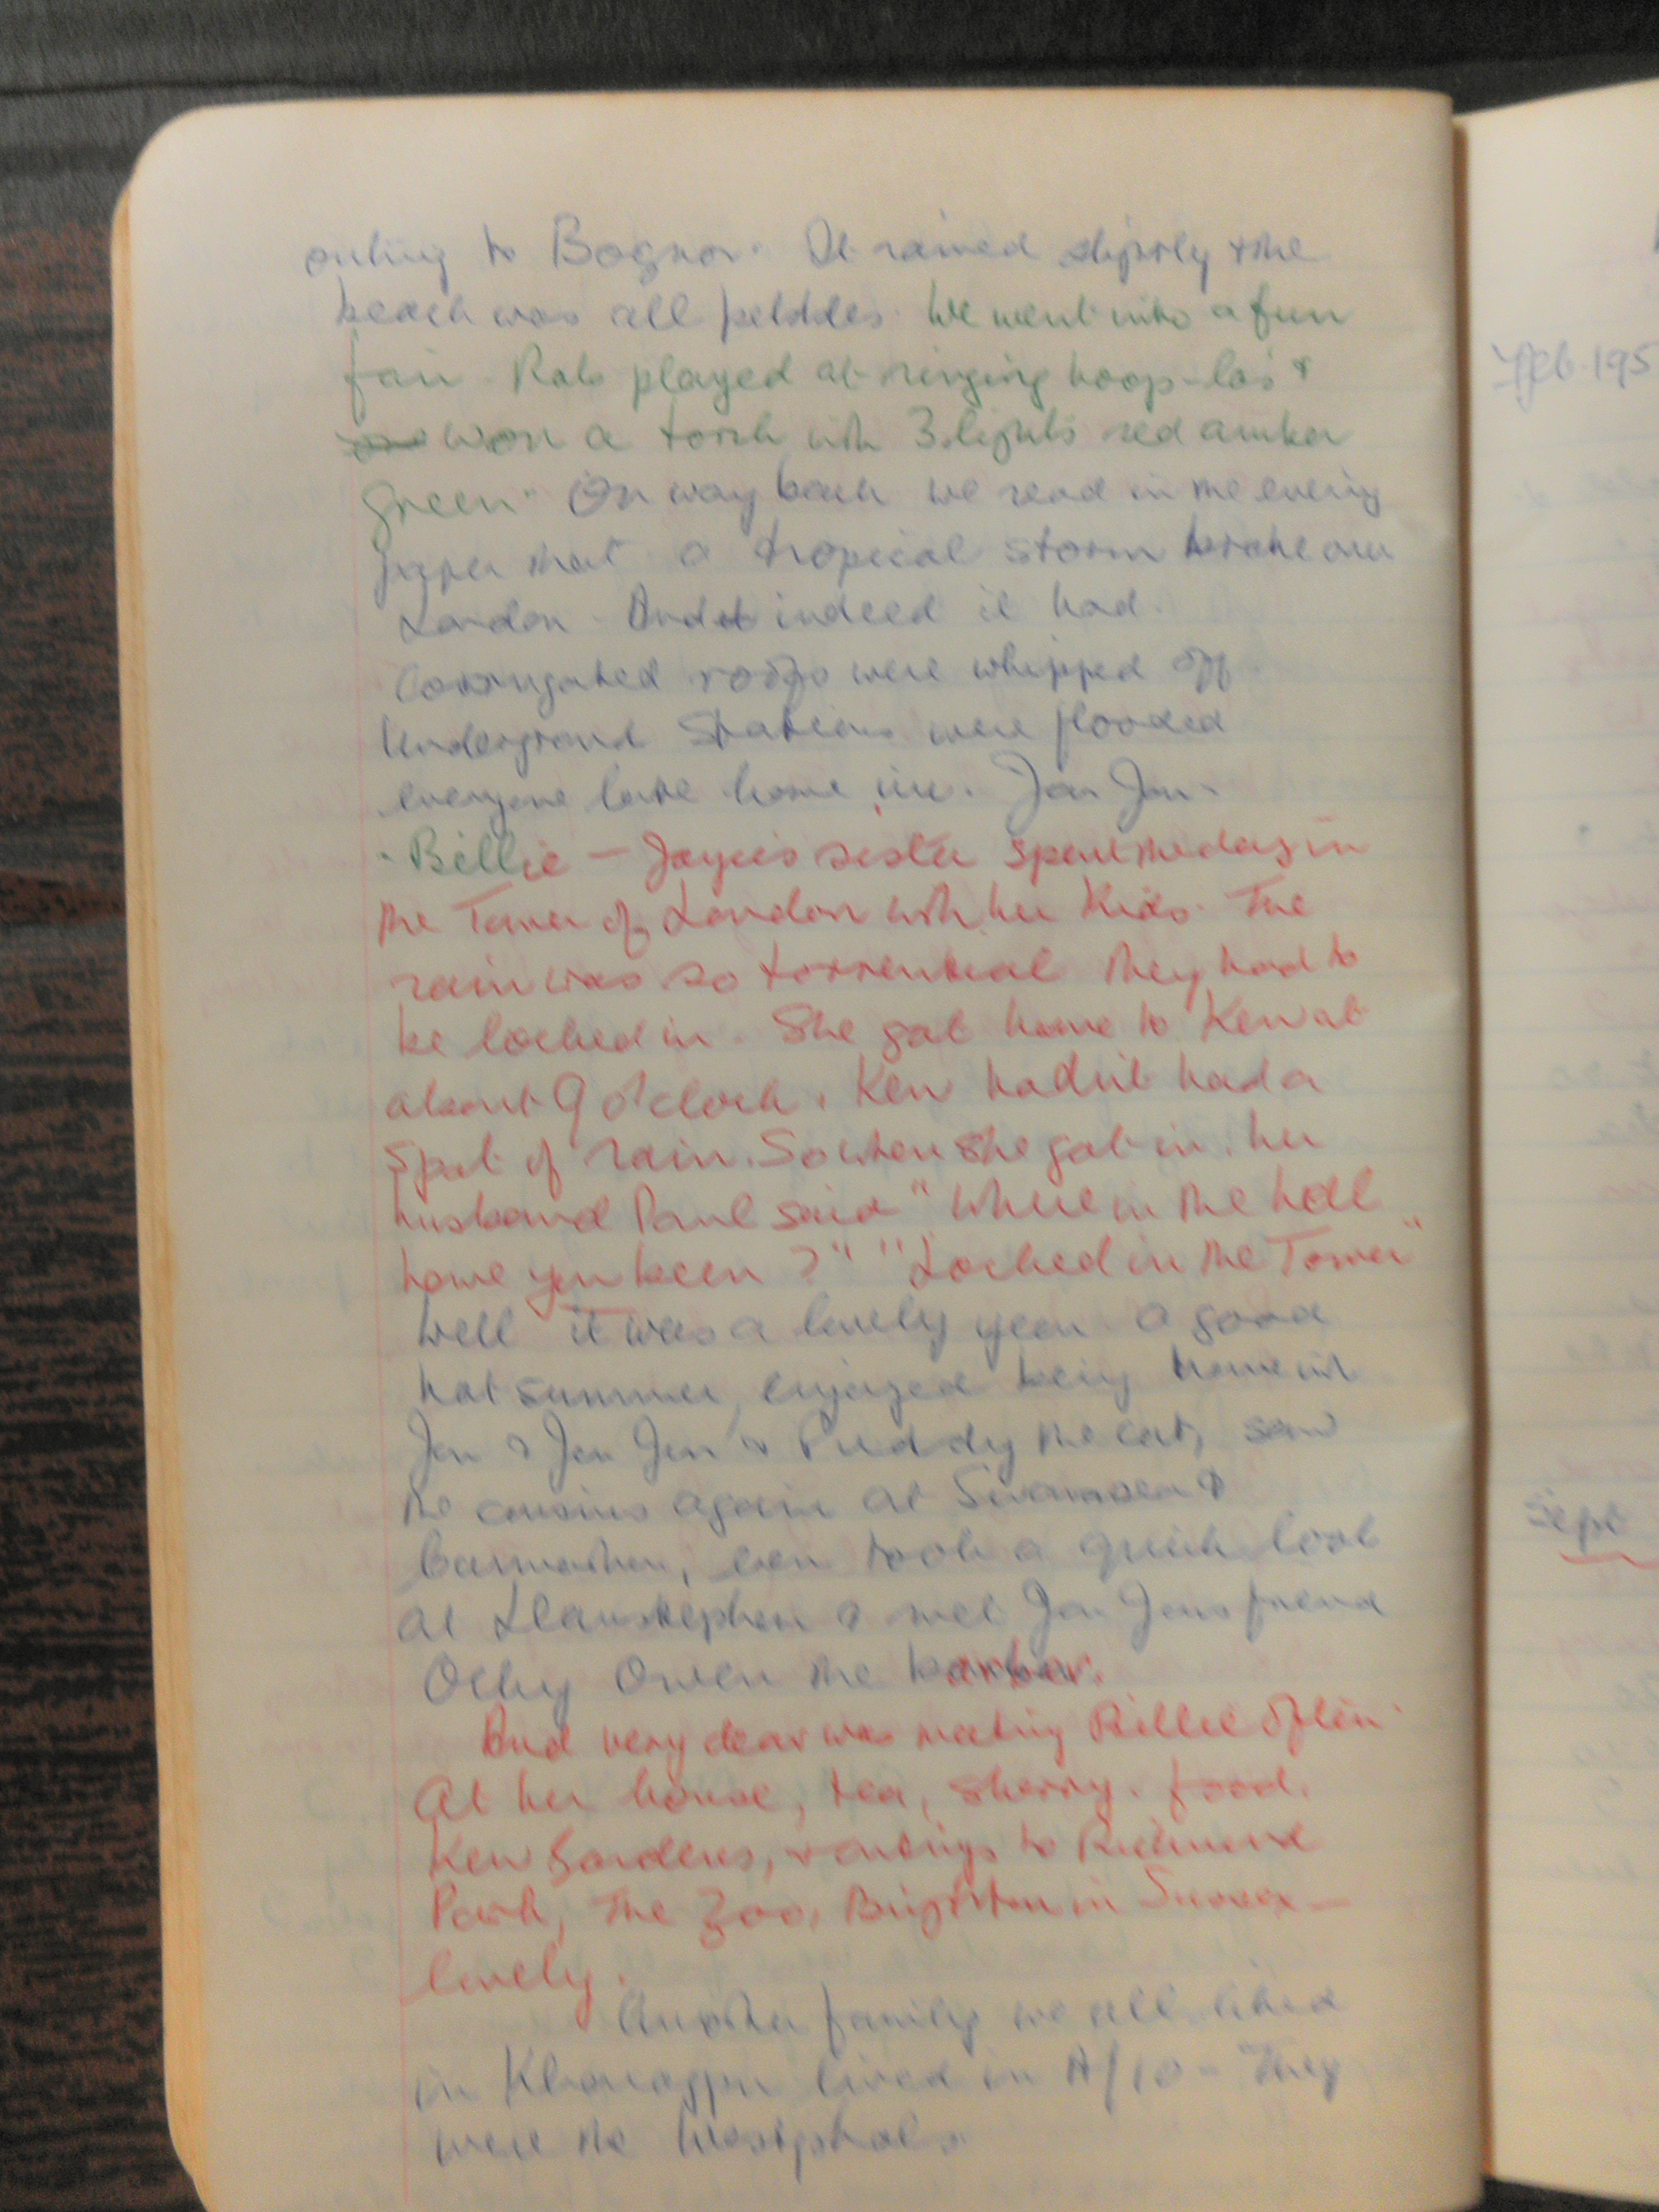 outing to Bognor. It rained slightly & the
beach was all pebbles. We went into a fun
fair. Rob played at ringing hoop-la's &
won a torch with 3 lights red amber
green. On way back we read in the evening
paper that a tropical storm broke over
London. And indeed it had.
Corrugated roofs were whipped off
Underground Stations were flooded
everyone late home inc. Jon Jon.
Billie — Joyce's sister spent the day in
the Tower of London with her Kids. The
rain was so torrential they had to
be locked in. She got home to Kew at
about 9 o'clock. Kew hadn't had a
spot of rain. So when she got in, her
husband Paul said "Where in the hell
have you been?" "Locked in the Tower"
Well it was a lovely year a good
hot summer, enjoyed being home with
Jen & Jon Jon & Puddy the cat, saw
the cousins again at Swansea &
Carmarthen, even took a quick look
at Llanstephen & met Jon Jons friend
Ocky Owen the barbar.
And very dear was meeting Billie often.
At her house, tea, sherry. food.
Kew Gardens, & outings to Richmond
Park, The Zoo, Brighton in Sussex —
lovely.
Another family we all liked
in Kharagpur lived in A/10 - They
were the Westphals
Feb. 195
Sept